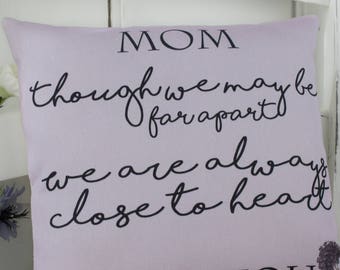 MOM
though we may be
far apart
we are always
close to heart